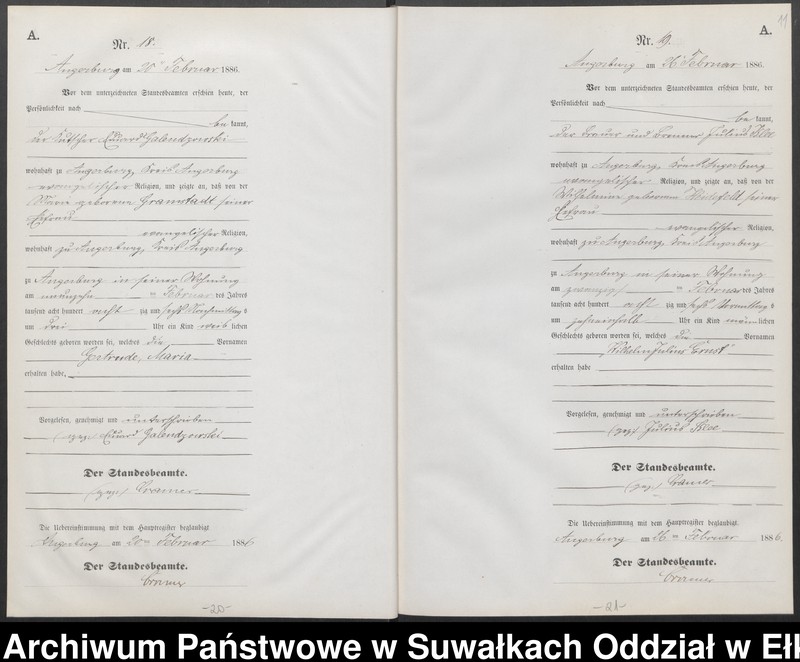 A.
Nr. 18.
Angerburg am 20 Februar 1886.
Vor dem unterzeichneten Standesbeamten erschien heute, der
Persönlichkeit nach
be kannt,
der Kutscher Eduard Galendzowski
wohnhaft zu Angerburg, Kreis Angerburg
evangelischer Religion, und zeigte an, daß von der
Marie geborene Gramstadt seiner
Ehefrau
evangelischer Religion,
wohnhaft zu Angerburg, Kreis Angerburg
zu Angerburg in seiner Wohnung
am neunzehn ten Februar des Jahres
tausend acht hundert acht zig und sechs Nachmittags
um drei Uhr ein Kind weib lichen
Geschlechts geboren worden sei, welches die Vornamen
Gertrude, Maria
erhalten habe,
Vorgelesen, genehmigt und unterschrieben
(gez.) Eduard Galendzowski
Der Standesbeamte.
(gez.) Cramer
Die Uebereinstimmung mit dem Hauptregister beglaubigt
Angerburg am 20ten Februar 1886
Der Standesbeamte.
Cramer
-20-
11
A.
Nr. 19.
Angerburg am 26 Februar 1886.
Vor dem unterzeichneten Standesbeamten erschien heute, der
Persönlichkeit nach
be kannt,
der Brauer und Brenner Julius
wohnhaft zu Angerburg, Kreis Angerburg
evangelischer Religion, und zeigte an, daß von der
Wilhelmine geborenen seiner
Ehefrau
evangelischer Religion,
wohnhaft zu Angerburg, Kreis Angerburg
zu Angerburg in seiner Wohnung
am zwanzig ten Februar des Jahres
tausend acht hundert acht zig und sechs Vormittags
um zehneinhalb Uhr ein Kind männ lichen
Geschlechts geboren worden sei, welches die Vornamen
Wilhelm Julius Ernst
erhalten habe
Vorgelesen, genehmigt und unterschrieben
(gez.) Julius
Der Standesbeamte.
(gez.) Cramer
Die Uebereinstimmung mit dem Hauptregister beglaubigt.
Angerburg am 26ten Februar 1886.
Der Standesbeamte.
Cramer
-21-
Archiwum Państwowe w Suwałkach Oddział w Ełk